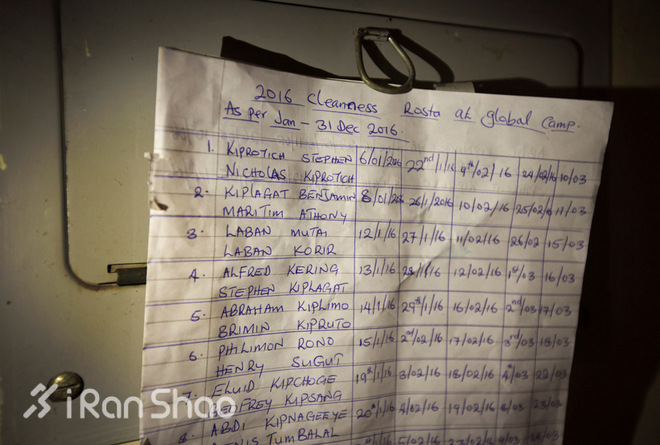 2016 Cleanness Rosta at global Camp.
As per Jan - 31 Dec 2016.
1. KIPROTICH STEPHEN 6/01/2016 22nd/1/16 4th/02/16 24/02/16 10/03
NICHOLAS KIPROTICH
2. KIPLAGAT BENJAMIN 8/01/206 26/1/2016 10/02/16 25/02/16 11/03
MARITIM ATHONY
3. LABAN MUTAI 12/1/16 27/1/16 11/02/16 26/02 15/03
LABAN KORIR
4. ALFRED KERING 13/1/16 28/1/16 12/02/16 1st/03 16/03
STEPHEN KIPLAGAT
5. ABRAHAM KIPLIMO 14/1/16 29th/1/16 16/02/16 2nd/03 17/03
BRIMIN KIPRUTO
6. PHILIMON RONO 15/1/16 2nd/02/16 17/02/16 3rd/03 18/03
HENRY SUGUT
7. ELUID KIPCHOGE 19th/1/16 3/02/16 18/02/16 4th/03 22/03
GEOFREY KIPSANG
8. ABDI KIPNAGEEYE 20th/1/16 4/02/16 19/02/16 8/03 23/03
TUMBALAL
iRanShao